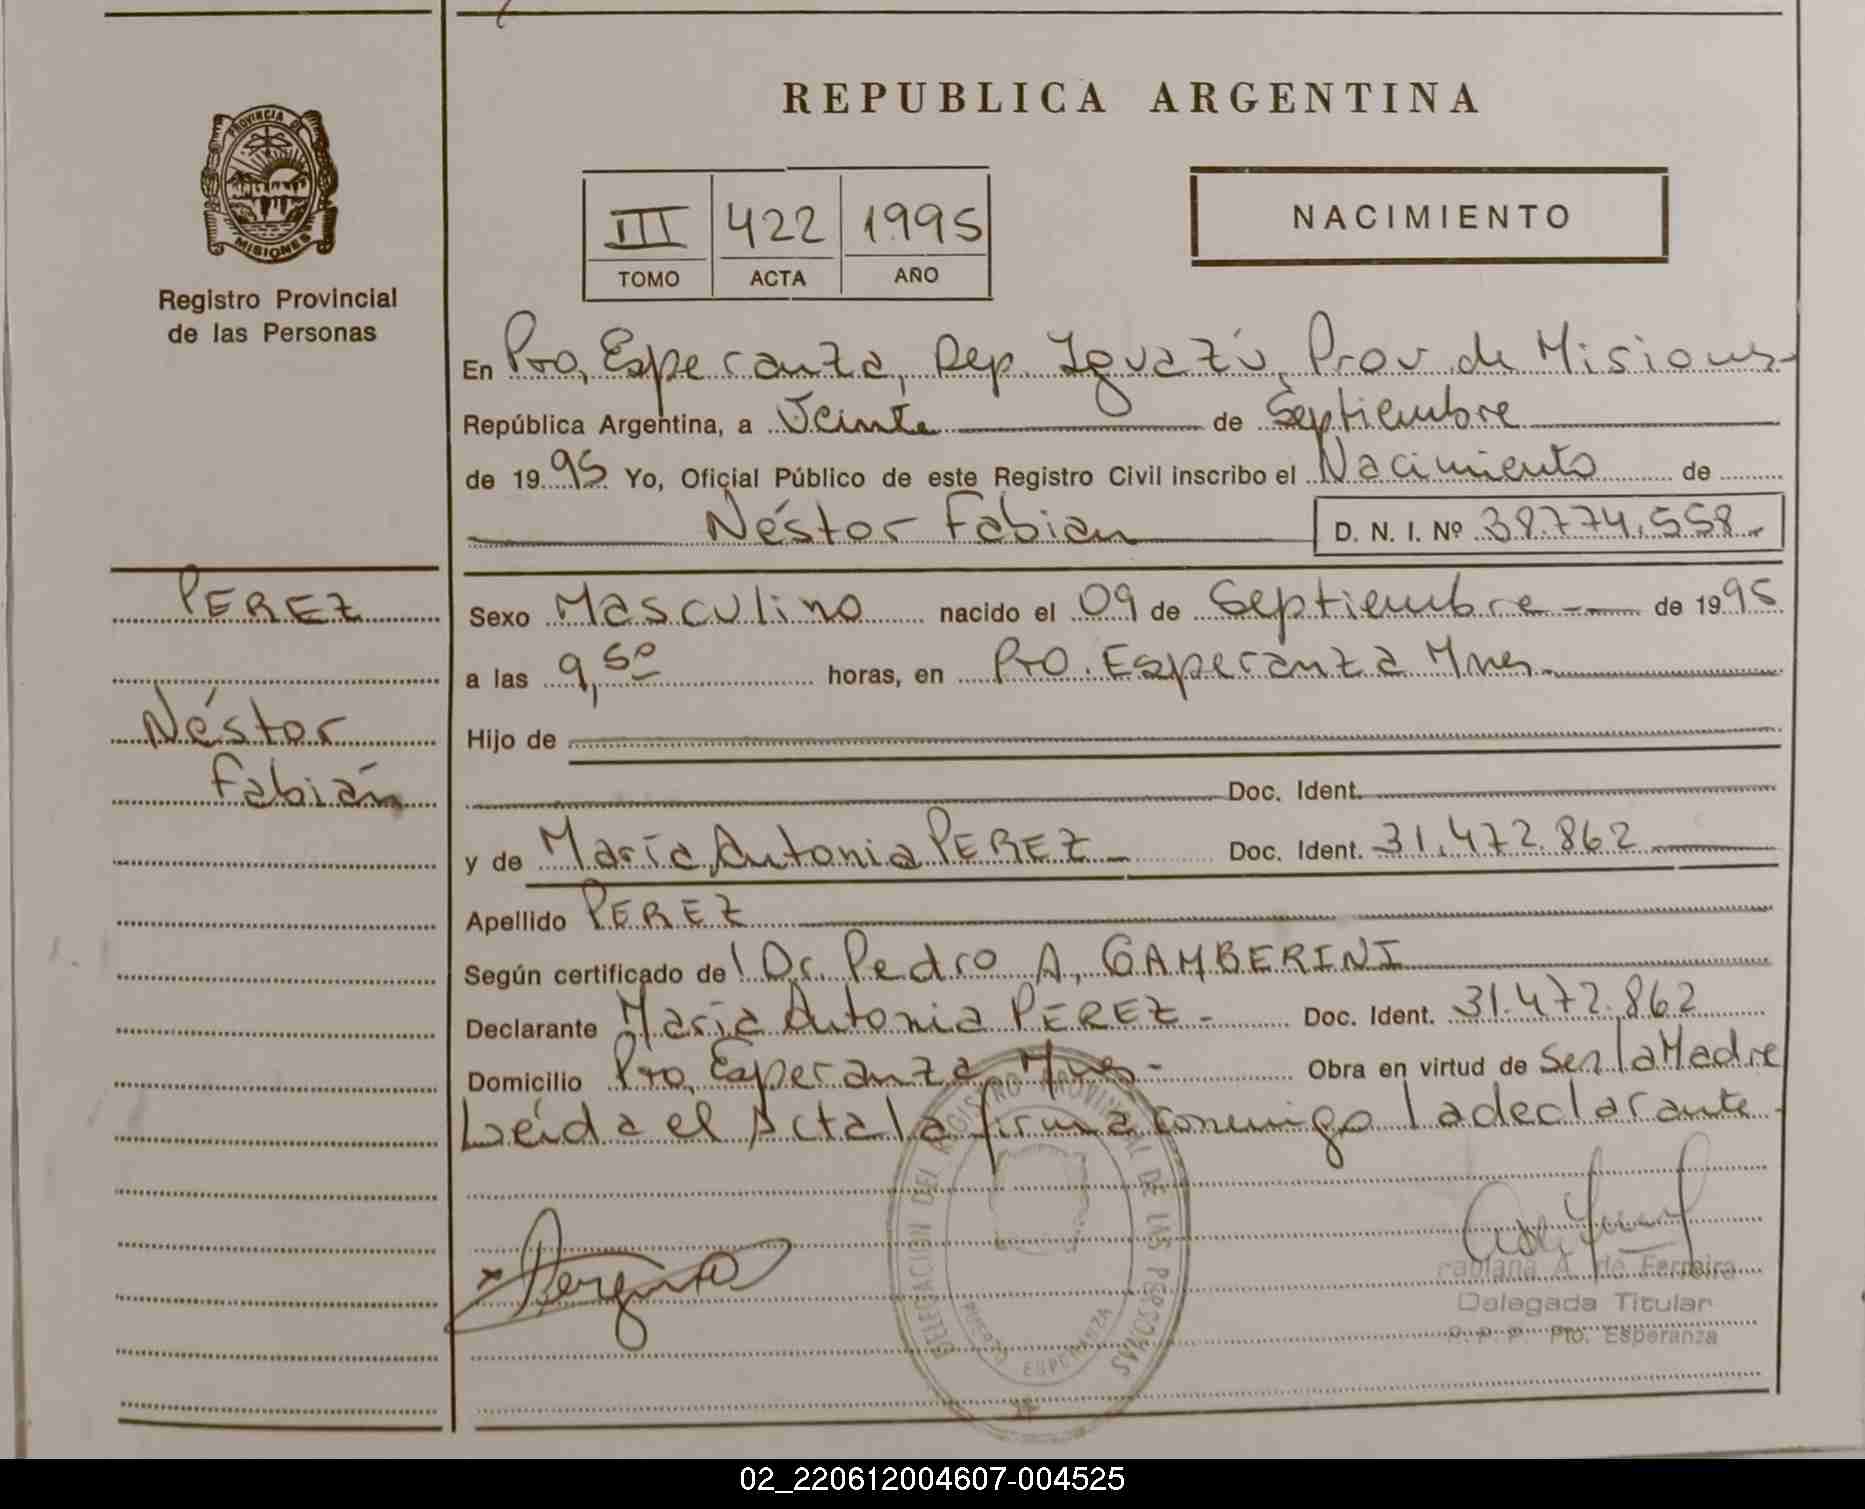 REPUBLICA ARGENTINA
PROVINCIA DE
MISIONES
Registro Provincial
de las Personas
III 422 1995
TOMO ACTA AÑO
NACIMIENTO
En Pto, Esperanza, Dep. Iguazú, Prov de Misiones-
República Argentina, a Veinte de Septiembre
de 1995 Yo, Oficial Público de este Registro Civil inscribo el Nacimiento de
Néstor Fabian D. N. I. Nº 38.774.558.-
PEREZ
Néstor
Fabián
Sexo Masculino nacido el 09 de Septiembre - de 1995
a las 9,50 horas, en Pto. Esperanza Mnes.
Hijo de
Doc. Ident.
y de María Antonia PEREZ Doc. Ident. 31.472.862
Apellido PEREZ
Según certificado del Dr. Pedro A, GAMBERINI
Declarante María Antonia PEREZ - Doc. Ident. 31.472.862
Domicilio Pto, Esperanza Mnes - Obra en virtud de Ser la Madre
Leída el Acta la firma conmigo la declarante.
DELEGACION DEL REGISTRO PROVINCIAL DE LAS PERSONAS
PUERTO ESPERANZA
Fabiana A. de Ferreira
Delegada Titular
R. P. P. Pto. Esperanza
02_220612004607-004525